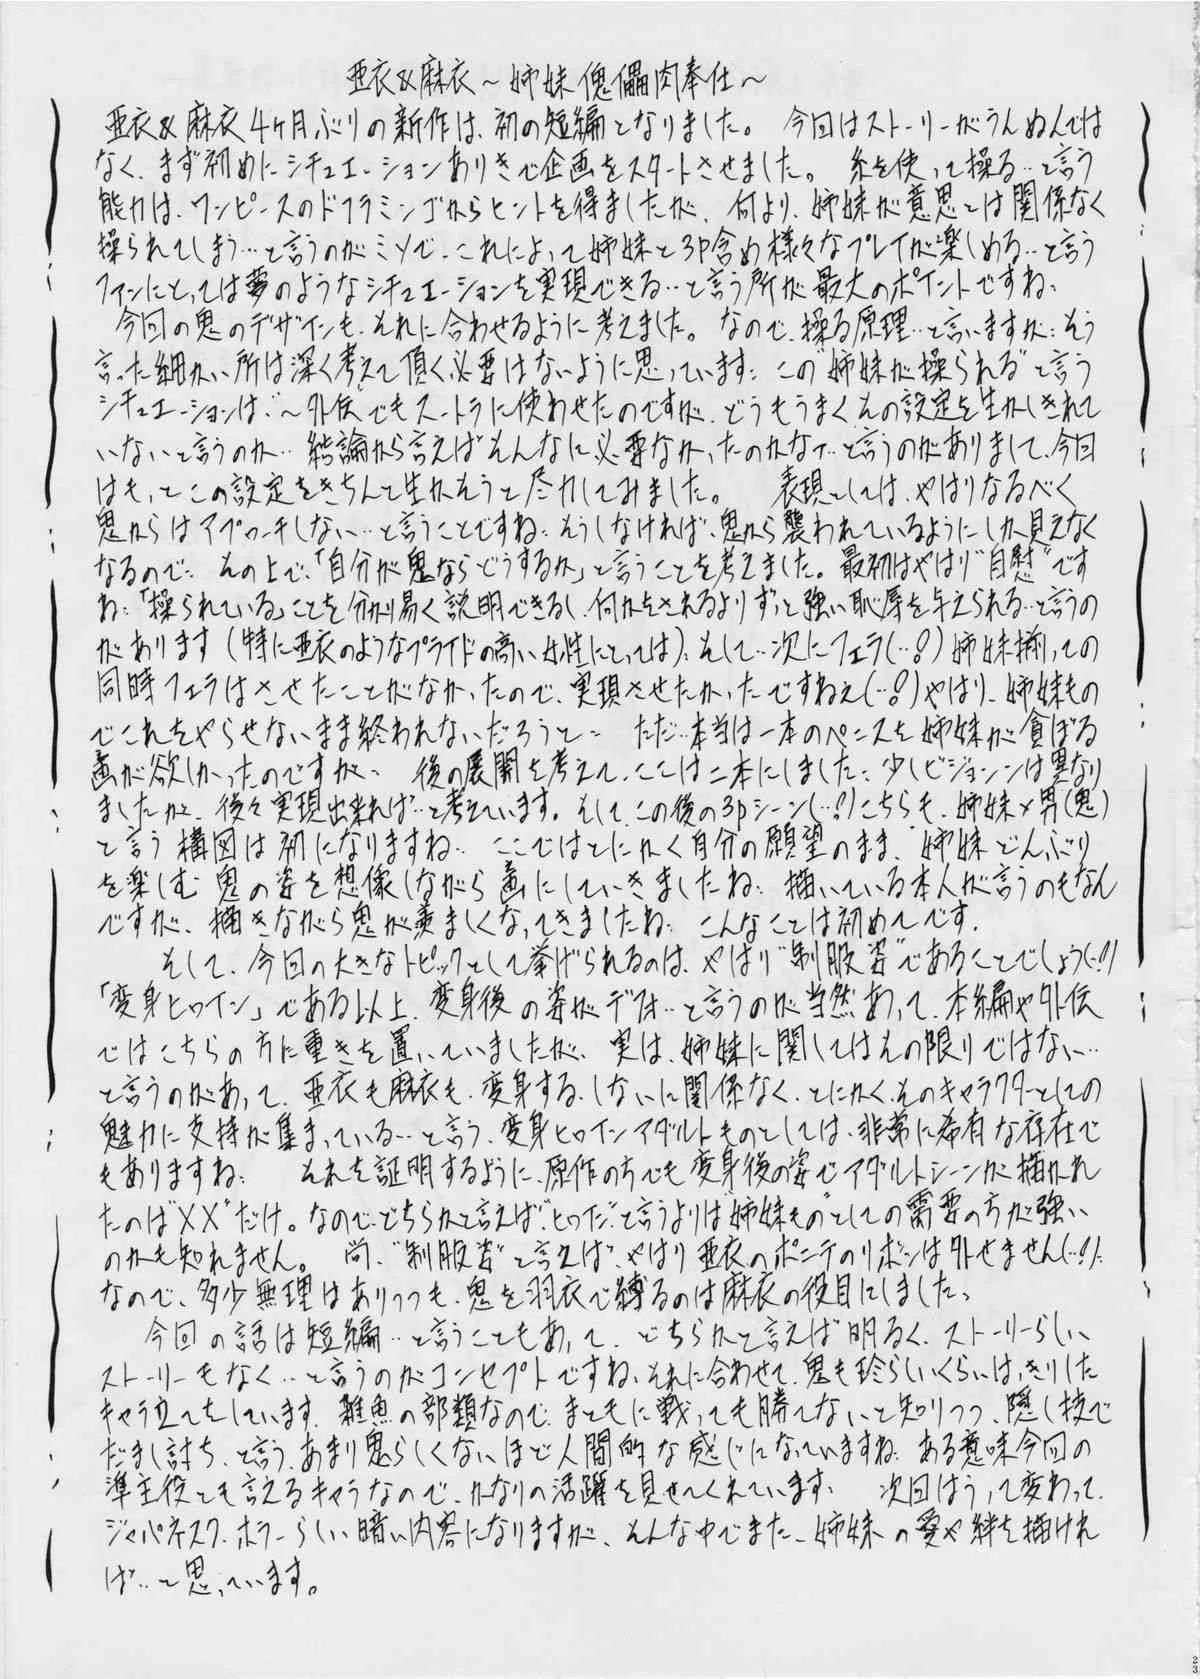 亜衣&麻衣～姉妹傀儡肉奉仕～
亜衣&麻衣4ヶ月ぶりの新作は、初の短編となりました。 今回はストーリーがうんぬんでは
なく、まず初めにシチュエーションありきで企画をスタートさせました。 糸を使って操る…と言う
能力は、ワンピースのドフラミンゴからヒントを得ましたが、何より、姉妹が意思とは関係なく
操られてしまう…と言うのがミソで、これによって姉妹と3P含め様々なプレイが楽しめる…と言う
ファンにとっては夢のようなシチュエーションを実現できる…と言う所が最大のポイントですね、
今回の鬼のデザインも、それに合わせるように考えました。 なので、操る原理…と言いますか…そう
言った細かい所は深く考えて頂く必要はないように思っています… この“姉妹が操られる”と言う
シチュエーションは、“～外伝”でもスートラに使わせたのですが、どうもうまくその設定を生かしきれて
いないと言うのか… 結論から言えばそんなに必要なかったのかなァ…と言うのがありまして、今回
はもっとこの設定をきちんと生かそうと尽力してみました。 表現としては、やはりなるべく
鬼からはアプローチしない…と言うことですね… そうしなければ、鬼から襲われているようにしか見えなく
なるので… その上で、「自分が鬼ならどうするか」と言うことを考えました。最初はやはり“自慰”です
ね…「操られている」ことを分かり易く説明できるし、何かをされるよりずっと強い恥辱を与えられる…と言うの
があります(特に亜衣のようなプライドの高い女性にとっては)… そして…次にフェラ(…!)姉妹揃っての
同時フェラはさせたことがなかったので、実現させたかったですねぇ(…!)やはり、姉妹もの
でこれをやらせないまま終われないだろうと… ただ…本当は一本のペニスを姉妹が貪ぼる
画が欲しかったのですが、 後の展開を考えて、ここは二本にしました… 少しビジョンは異なり
ましたが、後々実現出来れば…と考えています。そして、この後の3Pシーン(…!)こちらも、姉妹×男(鬼)
と言う構図は初になりますね… ここではとにかく自分の願望のまま、姉妹どんぶり
を楽しむ鬼の姿を想像しながら画にしていきましたね… 描いている本人が言うのもなん
ですが、描きながら鬼が羨ましくなってきましたね… こんなことは初めてです。
そして、今回の大きなトピックとして挙げられるのは、やはり“制服姿”であることでしょう(…!)
「変身ヒロイン」である以上、変身後の姿がデフォ…と言うのが当然あって、本編や外伝
ではこちらの方に重きを置いていましたが、実は、姉妹に関してはその限りではない…
と言うのがあって、亜衣も麻衣も、変身する、しないに関係なく、とにかく、そのキャラクターとしての
魅力に支持が集まっている…と言う、変身ヒロインアダルトものとしては、非常に希有な存在で
もありますね、 それを証明するように、原作の方でも変身後の姿でアダルトシーンが描かれ
たのは“XX”だけ。なので、どちらかと言えば“ヒロイン”と言うよりは“姉妹もの”としての需要の方が強い
のかも知れません。 尚、“制服姿”と言えば、やはり亜衣のポニテのリボンは外せません(…!)、
なので、多少無理はありつつも、鬼を羽衣で縛るのは麻衣の役目にしました、
今回の話は短編…と言うこともあって、どちらかと言えば明るく、ストーリーらしい
ストーリーもなく…と言うのがコンセプトですね、それに合わせて、鬼も珍らしいくらいはっきりした
キャラ立てをしています、雑魚の部類なので、まともに戦っても勝てないと知りつつ、隠し技で
だまし討ち、と言う、あまり鬼らしくないほど人間的な感じになっていますね… ある意味今回の
準主役とも言えるキャラなので、かなりの活躍を見せてくれています、 次回はうって変わって、
ジャパネスク、ホラーらしい暗い内容になりますが、そんな中でまた、姉妹の愛や絆を描けれ
ば…と思っています。